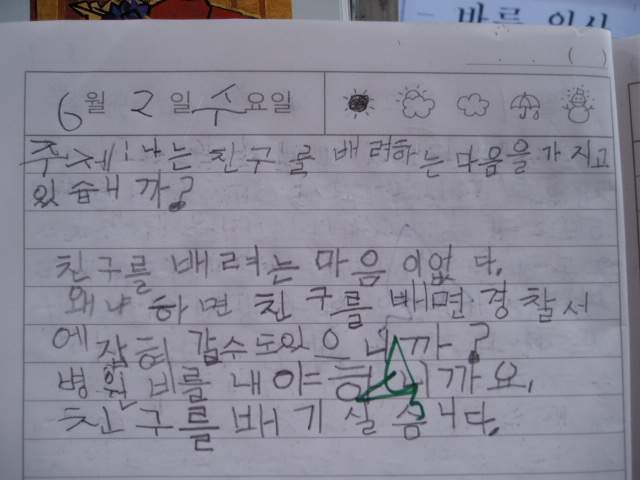 바른 인사
( )
6월 2일 수요일
주제:나는 친구를 배려하는 마음을 가지고
있습니까?
친구를 배려는 마음이없다.
왜냐하면 친구를 배면 경찰서
에 잡혀 갈수도있으니까?
병원비를 내야하니까요.
친구를 배기 실습니다.